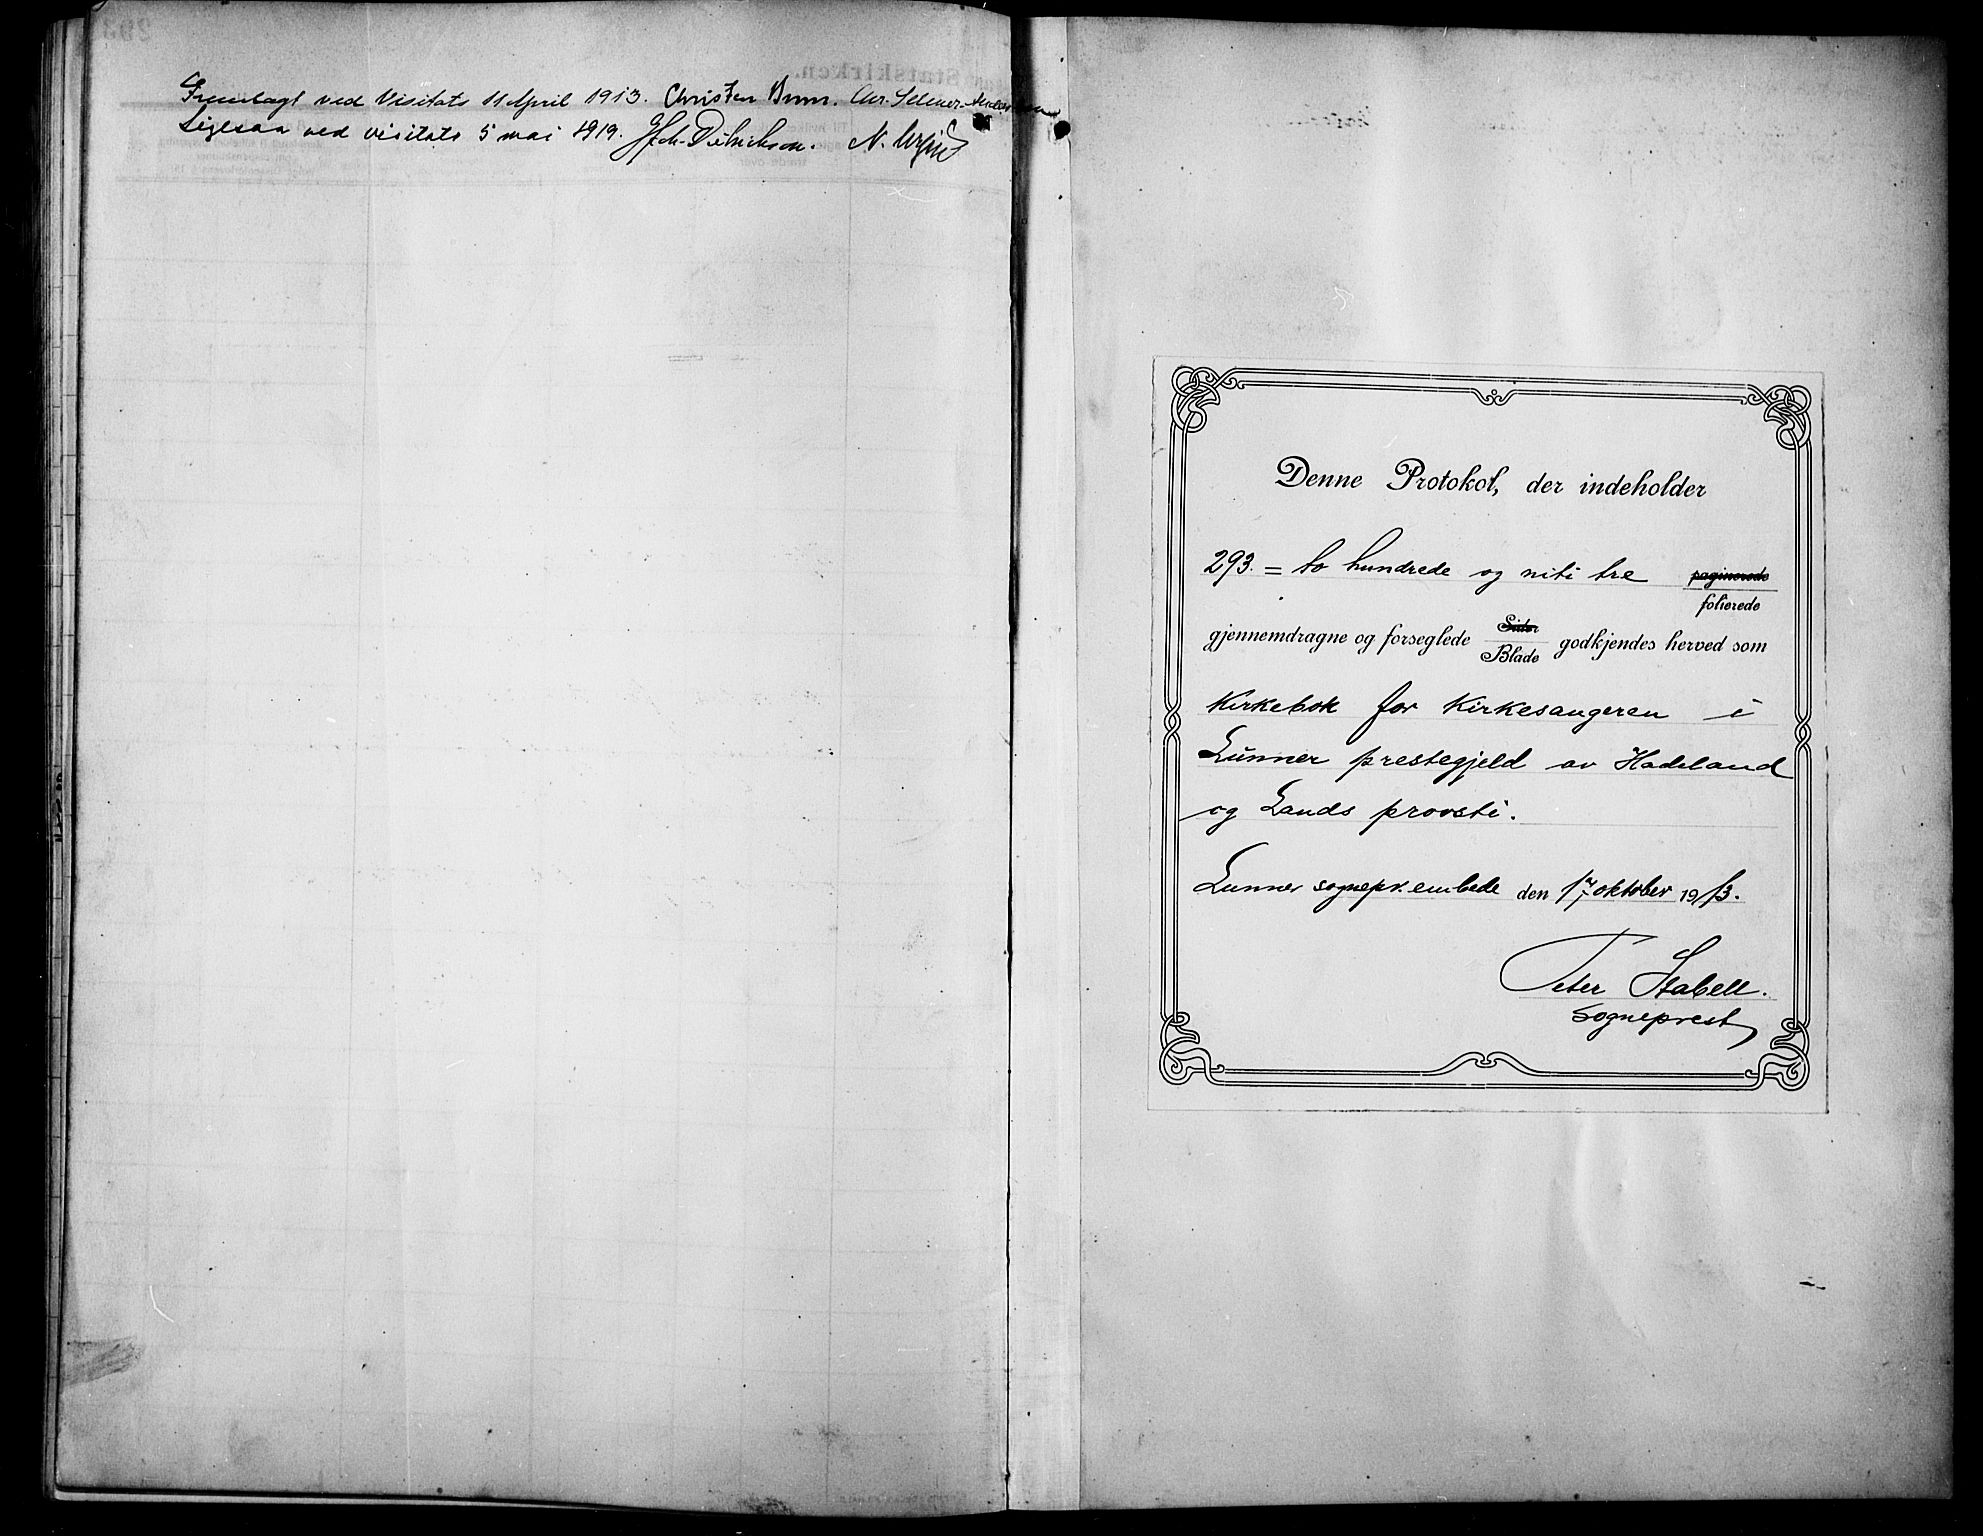 Fremlagt ved Visitats 11 April 1913. Christen Brun. Chr. Selmer-Anderssen
Ligesaa ved visitats 5 mai 1919. Dietrichson. N.
Denne Protokol, der indeholder
293. = to hundrede og niti tre paginerede
folierede
gjennemdragne og forseglede Sider godkjendes herved som
Blade
Kirkebok for Kirkesangeren i
Lunner prestegjeld av Hadeland
og Lands provsti.
Lunner sognepr.embede den 17 oktober 1913.
Peter Stabell.
Sogneprest